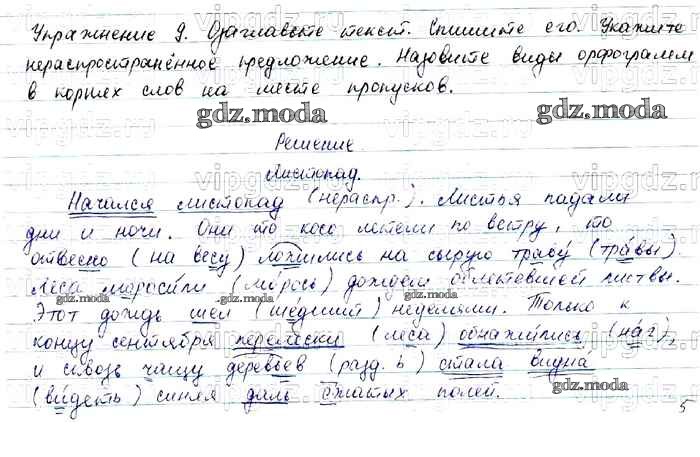 Упражнение 9. Озаглавьте текст. Спишите его. Укажите
нераспространённое предложение. Назовите виды орфограмм
в корнях слов на месте пропусков.
gdz.moda gdz.moda
Решение
Листопад.
Начался листопад (нераспр.). Листья падали
дни и ночи. Они то косо летели по ветру, то
отвесно (на весу) ложились на сырую траву (травы).
Леса моросили (морось) дождем облетевшей листвы.
gdz.moda gdz.moda
Этот дождь шел (шедший) неделями. Только к
концу сентября перелески (леса) обнажились (наг),
и сквозь чащу деревьев (разд. ь) стала видна
(видеть) синяя даль сжатых полей.
gdz.moda
5